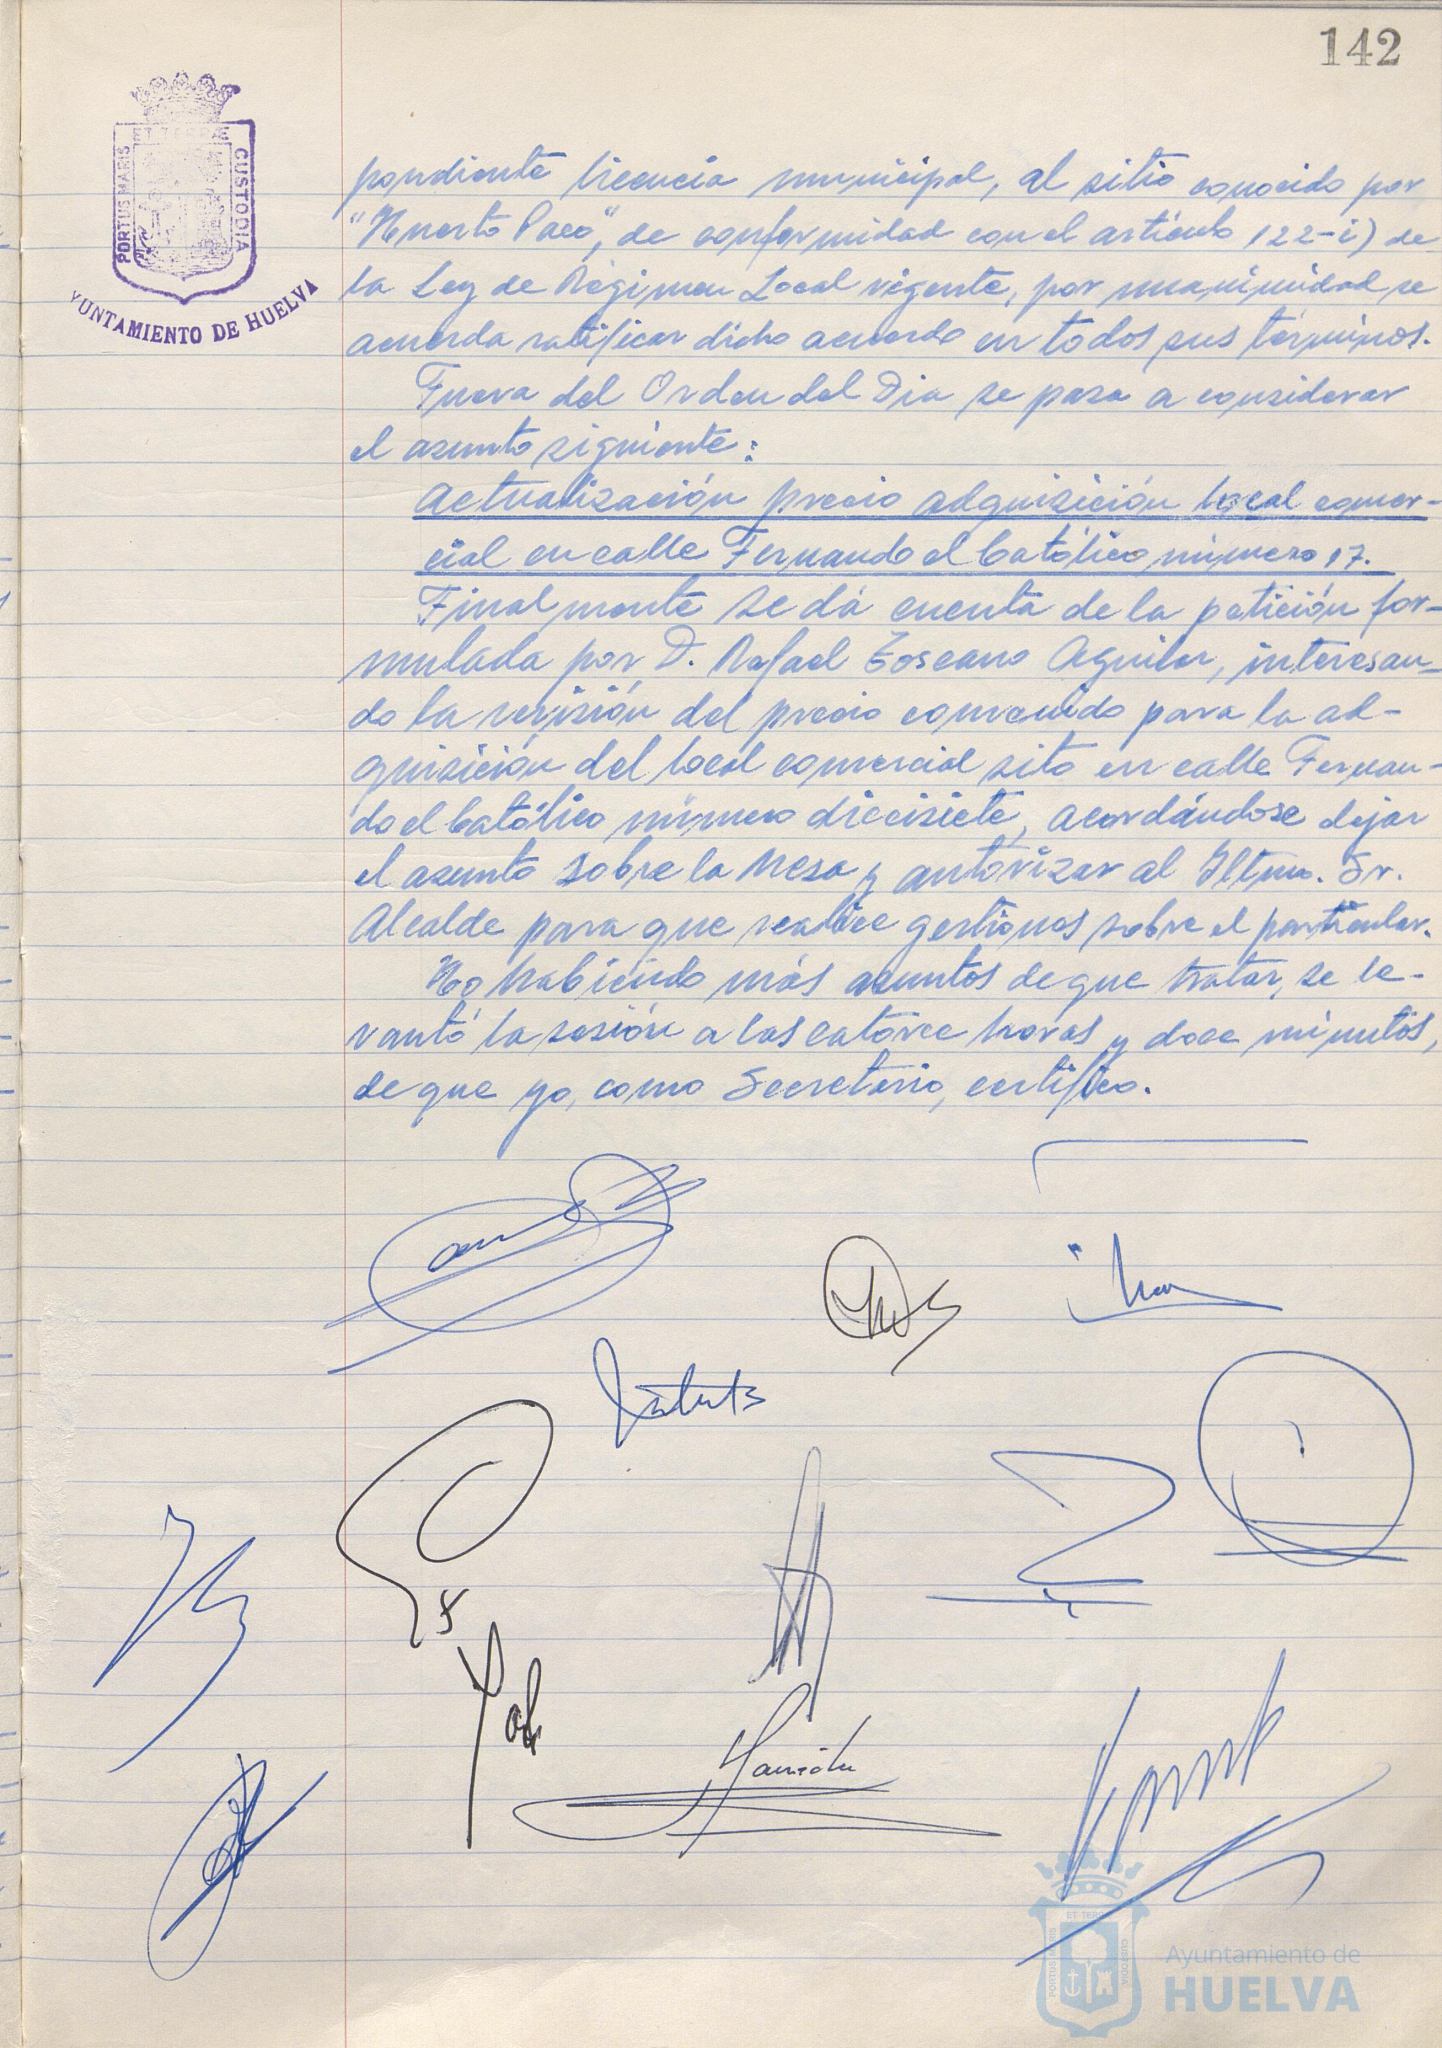 142
ET TERRÆ
PORTUS MARIS
CUSTODIA
YUNTAMIENTO DE HUELVA
pondiente licencia municipal, al sitio conocido por
"Huerto Paco", de conformidad con el artículo 122-i) de
la Ley de Régimen Local vigente, por unanimidad se
acuerda ratificar dicho acuerdo en todos sus términos.
Fuera del Orden del Dia se pasa a considerar
el asunto siguiente:
Actualización precio adquisición local comer-
cial en calle Fernando el Católico número 17.
Finalmente se dá cuenta de la petición for-
mulada por D. Rafael Toscano Aguilar, interesan-
do la revisión del precio convenido para la ad-
quisición del local comercial sito en calle Fernan-
do el Católico número diecisiete, acordándose dejar
el asunto sobre la Mesa y autorizar al Iltmo. Sr.
Alcalde para que realice gestiones sobre el particular.
No habiendo más asuntos de que tratar, se le-
vantó la sesión a las catorce horas y doce minutos,
de que yo, como Secretario, certifico.
ET TERRÆ
PORTUS MARIS
CUSTODIA
Ayuntamiento de
HUELVA